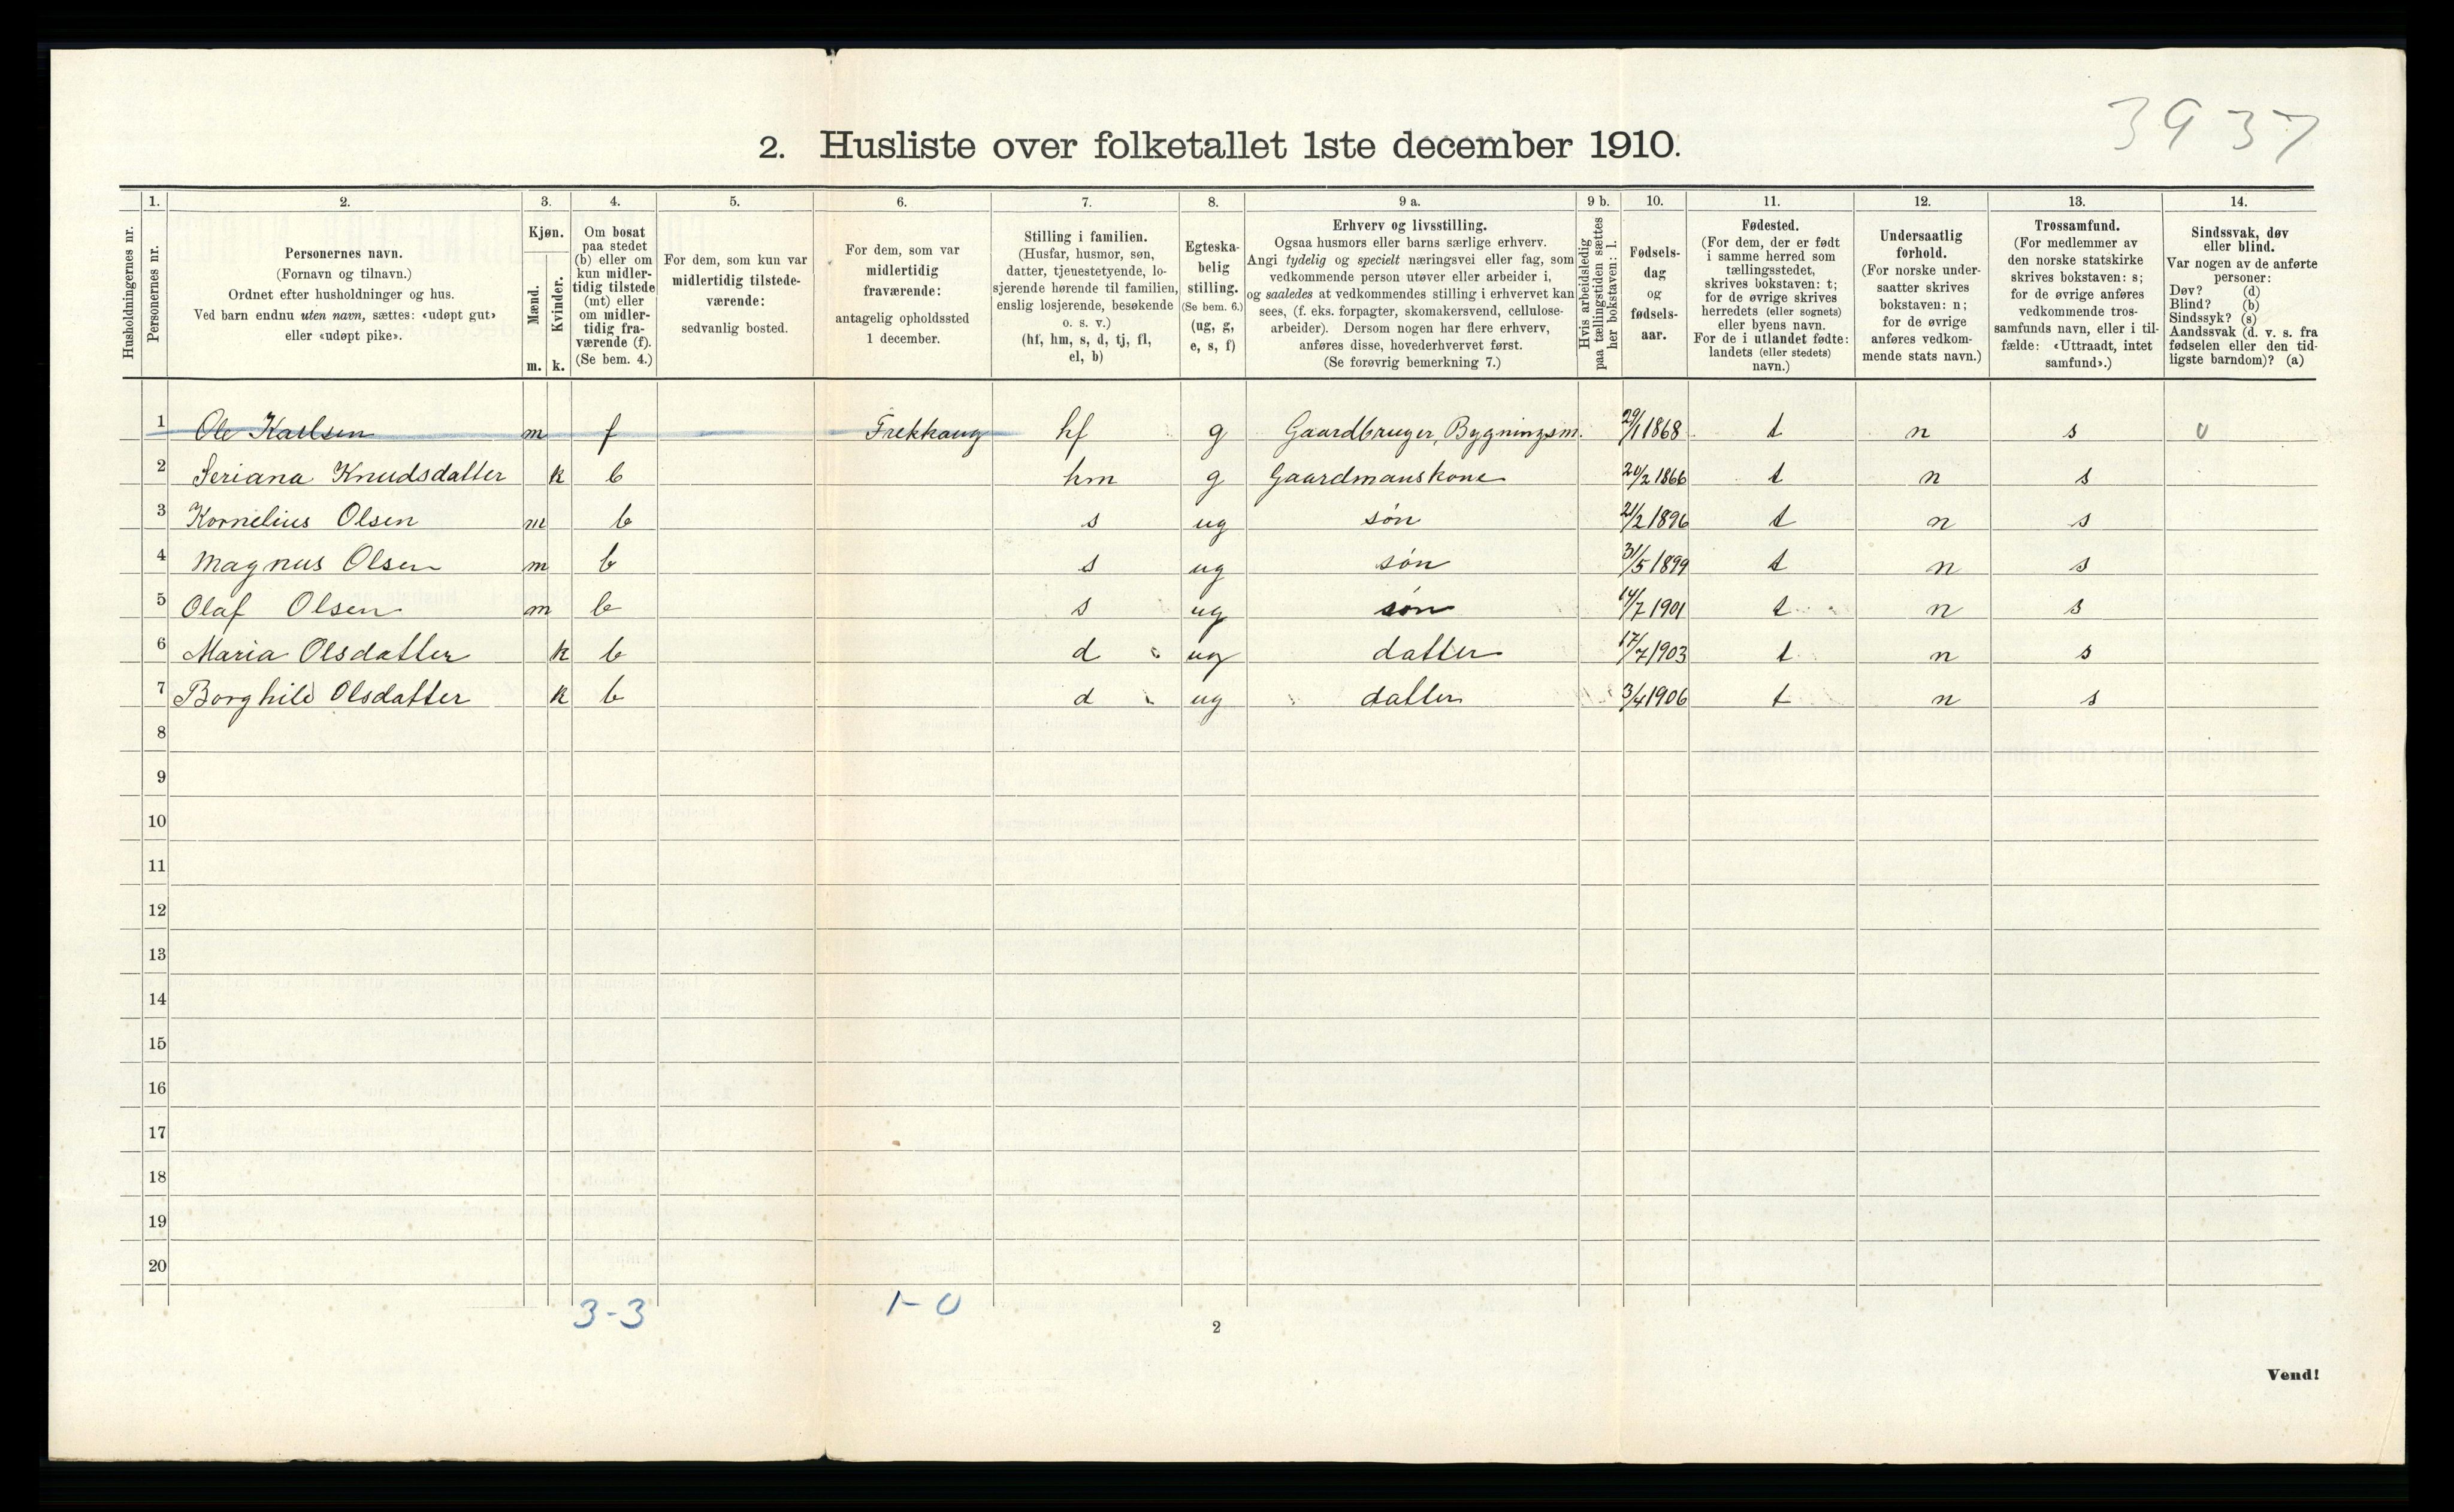 3937
2. Husliste over folketallet 1ste december 1910.
Husholdningernes nr.
1.
Personernes nr.
2.
Personernes navn.
(Fornavn og tilnavn.)
Ordnet efter husholdninger og hus.
Ved barn endnu uten navn, sættes: «udøpt gut»
eller «udøpt pike».
3.
Kjøn.
Mænd.
Kvinder.
m. k.
4.
Om bosat
paa stedet
(b) eller om
kun midler-
tidig tilstede
(mt) eller
om midler-
tidig fra-
værende (f).
(Se bem. 4.)
5.
For dem, som kun var
midlertidig tilstede-
værende:
sedvanlig bosted.
6.
For dem, som var
midlertidig
fraværende:
antagelig opholdssted
1 december.
7.
Stilling i familien.
(Husfar, husmor, søn,
datter, tjenestetyende, lo-
sjerende hørende til familien,
enslig losjerende, besøkende
o. s. v.)
(hf, hm, s, d, tj, fl,
el, b)
8.
Egteska-
belig
stilling.
(Se bem. 6.)
(ug, g,
e, s, f)
9 a.
Erhverv og livsstilling.
Ogsaa husmors eller barns særlige erhverv.
Angi tydelig og specielt næringsvei eller fag, som
vedkommende person utøver eller arbeider i,
og saaledes at vedkommendes stilling i erhvervet kan
sees, (f. eks. forpagter, skomakersvend, cellulose-
arbeider). Dersom nogen har flere erhverv,
anføres disse, hovederhvervet først.
(Se forøvrig bemerkning 7.)
9 b.
Hvis arbeidsledig
paa tællingstiden sættes
her bokstaven: l.
10.
Fødsels-
dag
og
fødsels-
aar.
11.
Fødested.
(For dem, der er født
i samme herred som
tællingsstedet,
skrives bokstaven: t;
for de øvrige skrives
herredets (eller sognets)
eller byens navn.
For de i utlandet fødte:
landets (eller stedets)
navn.)
12.
Undersaatlig
forhold.
(For norske under-
saatter skrives
bokstaven: n;
for de øvrige
anføres vedkom-
mende stats navn.)
13.
Trossamfund.
(For medlemmer av
den norske statskirke
skrives bokstaven: s;
for de øvrige anføres
vedkommende tros-
samfunds navn, eller i til-
fælde: «Uttraadt, intet
samfund».)
14.
Sindssvak, døv
eller blind.
Var nogen av de anførte
personer:
Døv? (d)
Blind? (b)
Sindssyk? (s)
Aandssvak (d. v. s. fra
fødselen eller den tid-
ligste barndom)? (a)
1 Ole Karlsen m f Frekhaug hf g Gaardbruger, Bygningsm. 29/1 1868 t n s 0
2 Seriana Knudsdatter k b hm g Gaardmanskone 20/2 1866 t n s
3 Kornelius Olsen m b s ug søn 21/2 1896 t n s
4 Magnus Olsen m b s ug søn 31/5 1899 t n s
5 Olaf Olsen m b s ug søn 14/7 1901 t n s
6 Maria Olsdatter k b d ug datter 17/7 1903 t n s
7 Borghild Olsdatter k b d ug datter 3/4 1906 t n s
8
9
10
11
12
13
14
15
16
17
18
19
20
3-3 1-0
2
Vend!